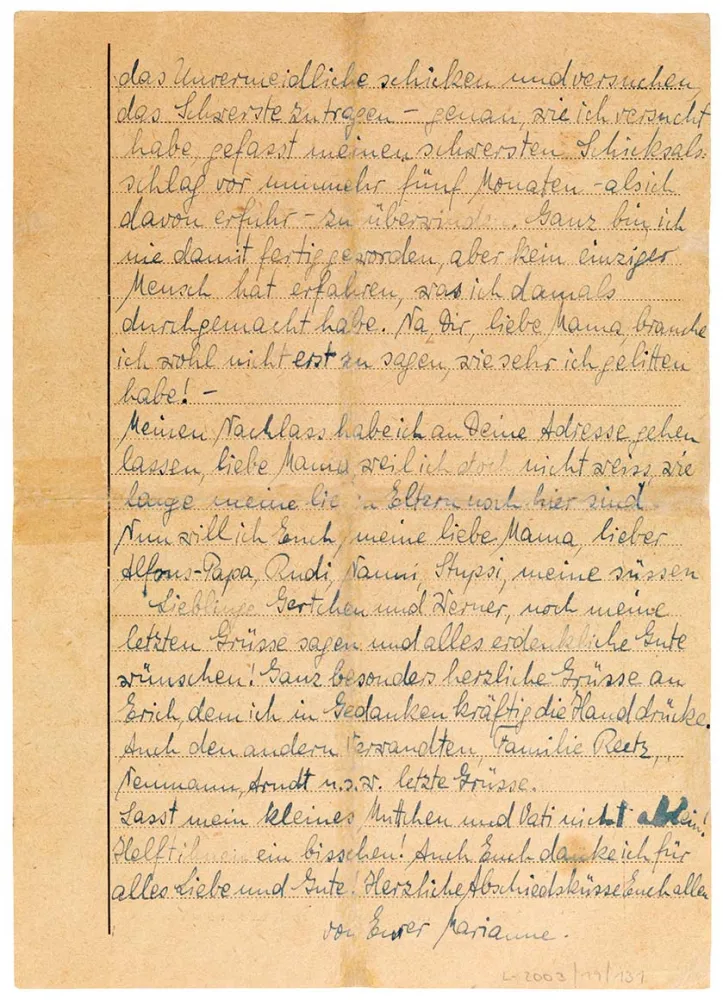 das Unvermeidliche schicken und versuchen,
das Schwerste zu tragen – genau, wie ich versucht
habe, gefasst meinen schwersten Schicksals-
schlag vor nunmehr fünf Monaten – als ich
davon erfuhr – zu überwinden. Ganz bin ich
nie damit fertiggeworden, aber kein einziger
Mensch hat erfahren, was ich damals
durchgemacht habe. Na, Dir, liebe Mama, brauche
ich wohl nicht erst zu sagen, wie sehr ich gelitten
habe! –
Meinen Nachlass habe ich an Deine Adresse gehen
lassen, liebe Mama, weil ich doch nicht weiss, wie
lange meine lieben Eltern noch hier sind.
Nun will ich Euch, meine liebe Mama, lieber
Alfons-Papa, Rudi, Nanni, Stupsi, meine süssen
Lieblinge Gertchen und Werner, noch meine
letzten Grüsse sagen und alles erdenkliche Gute
wünschen! Ganz besonders herzliche Grüsse an
Erich, dem ich in Gedanken kräftig die Hand drücke.
Auch den andern Verwandten, Familie Reetz,
Neumann, Arndt u.s.w. letzte Grüsse.
Lasst mein kleines Muttchen und Vati nicht allein!
Helft ihnen ein bisschen! Auch Euch danke ich für
alles Liebe und Gute! Herzliche Abschiedsküsse Euch allen
von Eurer Marianne.
L-2003/19/131